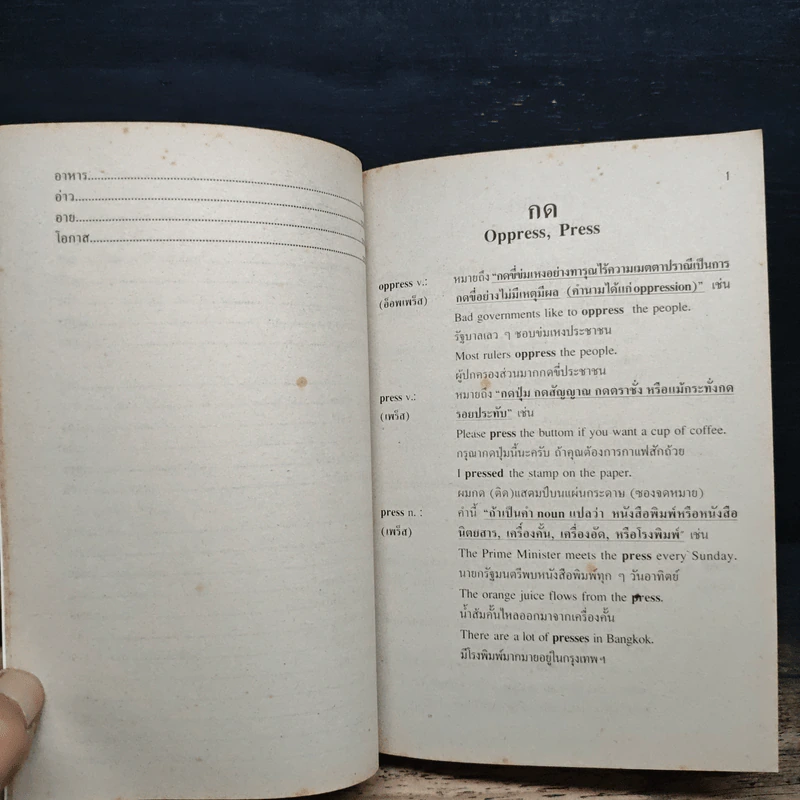 อาหาร
อ่าว
อาย
โอกาส
1
กด
Oppress, Press
oppress v.: หมายถึง “กดขี่ข่มเหงอย่างทารุณไร้ความเมตตาปราณีเป็นการ
(อ็อพเพร็ส) กดขี่อย่างไม่มีเหตุมีผล (คำนามได้แก่ oppression)” เช่น
Bad governments like to oppress the people.
รัฐบาลเลว ๆ ชอบข่มเหงประชาชน
Most rulers oppress the people.
ผู้ปกครองส่วนมากกดขี่ประชาชน
press v.: หมายถึง “กดปุ่ม กดสัญญาณ กดตราชั่ง หรือแม้กระทั่งกด
(เพร็ส) รอยประทับ” เช่น
Please press the buttom if you want a cup of coffee.
กรุณากดปุ่มนี้นะครับ ถ้าคุณต้องการกาแฟสักถ้วย
I pressed the stamp on the paper.
ผมกด (ติด) แสตมป์บนแผ่นกระดาษ (ซองจดหมาย)
press n. : คำนี้ “ถ้าเป็นคำ noun แปลว่า หนังสือพิมพ์หรือหนังสือ
(เพร็ส) นิตยสาร, เครื่องคั้น, เครื่องอัด, หรือโรงพิมพ์” เช่น
The Prime Minister meets the press every Sunday.
นายกรัฐมนตรีพบหนังสือพิมพ์ทุก ๆ วันอาทิตย์
The orange juice flows from the press.
น้ำส้มคั้นไหลออกมาจากเครื่องคั้น
There are a lot of presses in Bangkok.
มีโรงพิมพ์มากมายอยู่ในกรุงเทพฯ